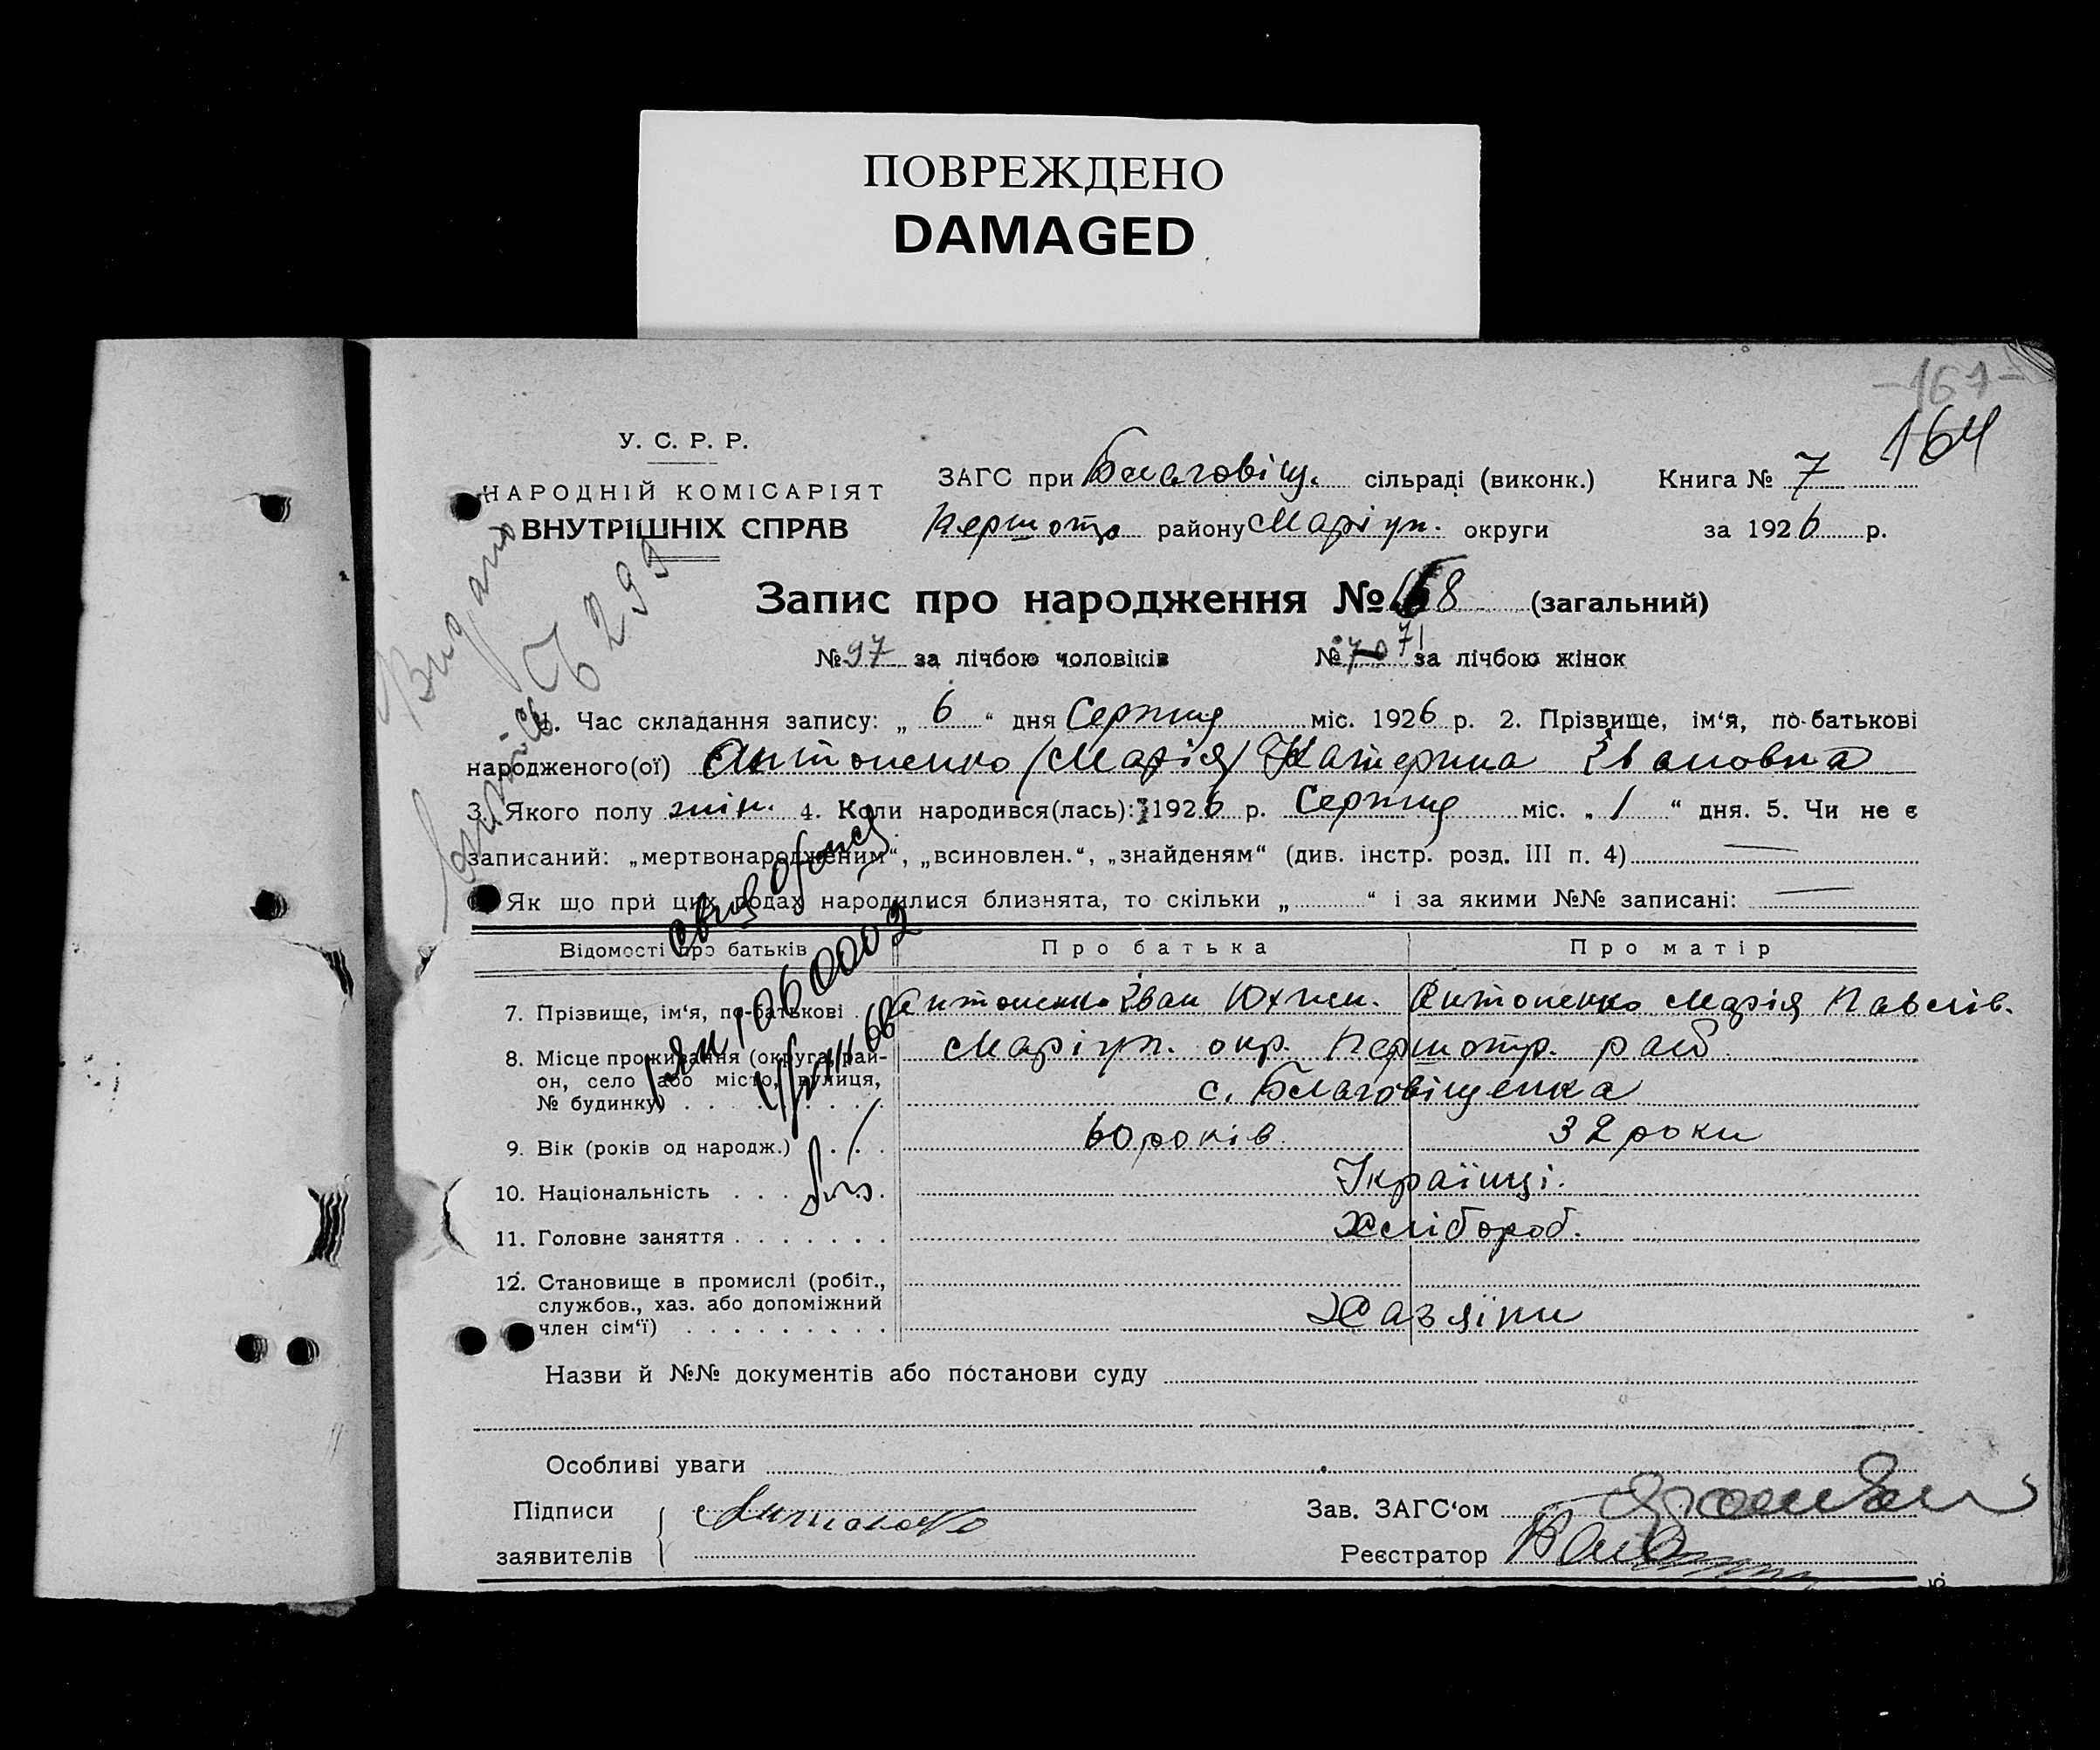 ПОВРЕЖДЕНО
DAMAGED
-161-
164
У. С. Р. Р.
НАРОДНІЙ КОМІСАРІЯТ
ВНУТРІШНІХ СПРАВ
ЗАГС при Благовіщ. сільраді (виконк.) Книга № 7
Першотр району Маріуп. округи за 1926 р.
Запис про народження № 168 (загальний)
№ 97 за лічбою чоловіків № 70 71 за лічбою жінок
Видано
1. Час складання запису: „ 6 “ дня Серпня міс. 1926 р. 2. Прізвище, ім‘я, по-батькові
народженого(ої) Антоненко /Марія/ Катерина Івановна
3. Якого полу жін. 4. Коли народився(лась): 1926 р. Серпня міс. „ 1 “ дня. 5. Чи не є
записаний: „мертвонародженим“, „всиновлен.“, „знайденям“ (див. інстр. розд. III п. 4) —
Як що при цих родах народилися близнята, то скільки „ “ і за якими №№ записані: —
Відомості про батьків Про батька Про матір
7. Прізвище, ім‘я, по-батькові . Антоненко Іван Юхим. Антоненко Марія Павлів.
8. Місце проживання (округа, рай- Маріуп. окр. Першотр. раб
он, село або місто, вулиця, с. Благовіщенка
№ будинку)
9. Вік (років од народж.) 60 років. 32 роки
10. Національність Українці.
11. Головне заняття Хлібороб.
12. Становище в промислі (робіт.,
службов., хаз. або допоміжний Хазяїни
член сім‘ї)
Назви й №№ документів або постанови суду
Особливі уваги
Підписи Зав. ЗАГС‘ом
заявителів Реєстратор